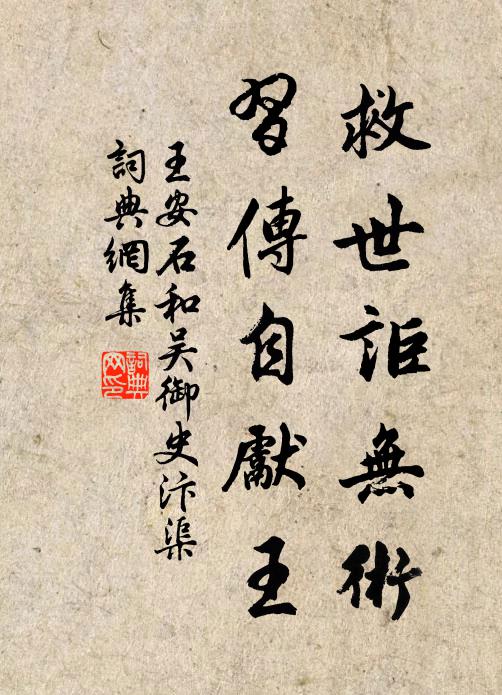 救世詎無術
習傳自獻王
王安石和吴御史汴渠
詞典網集
詞典網印